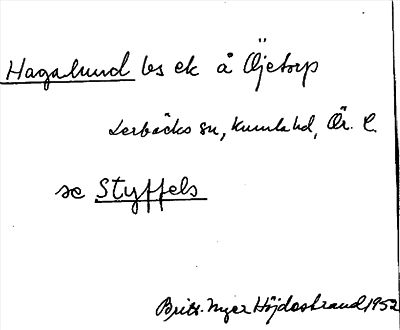 Hagalund ls ek å Öjetorp
Lerbäcks sn, Kumla hd, Ör. l.
se Styffels
Brita Nyer Höjdestrand 1952